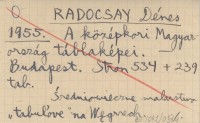 RADOCSAY Dénes
1955. A középkori Magyar
ország táblaképei.
Budapest. Stron 534 + 239
tab.
Średniowieczne malarstwo
tabulowe na Węgrzech